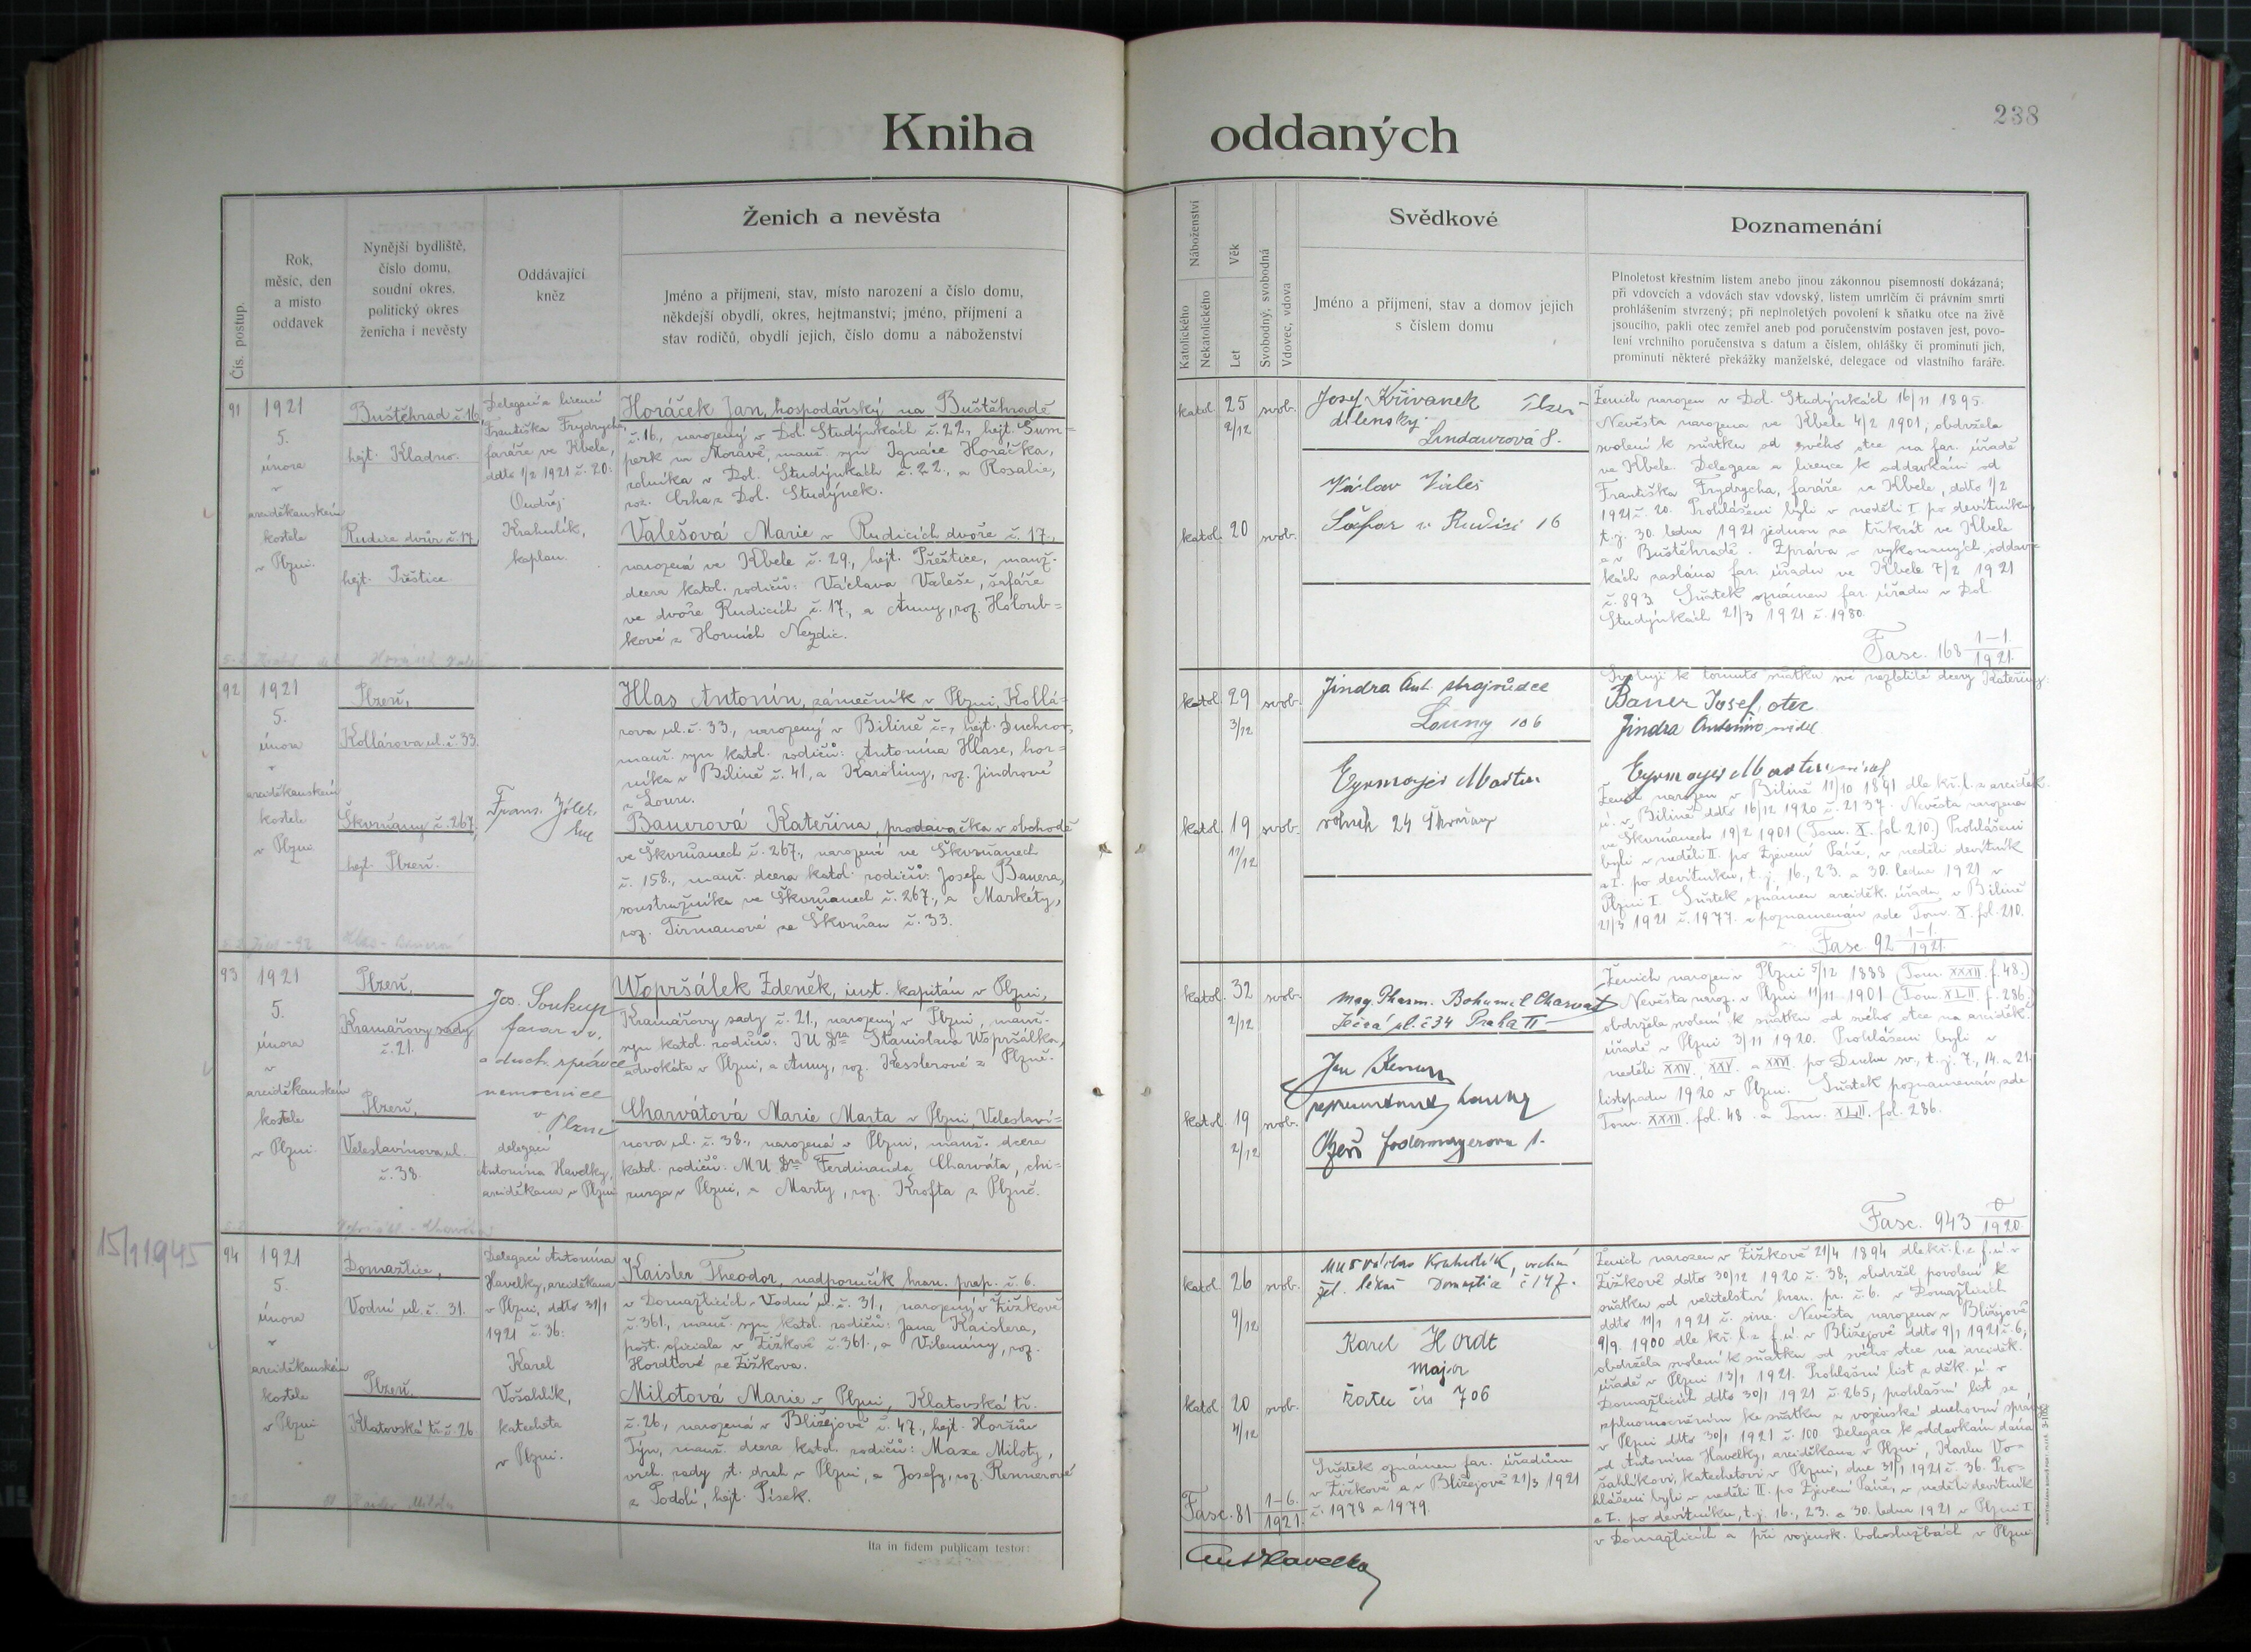 Kniha oddaných
238
Čís. postup.
Rok,
měsíc, den
a místo
oddavek
Nynější bydliště,
číslo domu,
soudní okres,
politický okres
ženicha i nevěsty
Oddávající
kněz
Ženich a nevěsta
Jméno a příjmení, stav, místo narození a číslo domu,
někdejší obydlí, okres, hejtmanství; jméno, příjmení a
stav rodičů, obydlí jejich, číslo domu a náboženství
Náboženství
Katolického
Nekatolického
Věk
Let
Svobodný, svobodná
Vdovec, vdova
Svědkové
Jméno a příjmení, stav a domov jejich
s číslem domu
Poznamenání
Plnoletost křestním listem anebo jinou zákonnou písemností dokázaná;
při vdovcích a vdovách stav vdovský, listem umrlčím či právním smrti
prohlášením stvrzený; při neplnoletých povolení k sňatku otce na živě
jsoucího, pakli otec zemřel aneb pod poručenstvím postaven jest, povo-
lení vrchního poručenstva s datum a číslem, ohlášky či prominutí jich,
prominutí některé překážky manželské, delegace od vlastního faráře.
91
1921
5.
února
v
arciděkanském
kostele
v Plzni.
Buštěhrad č. 16,
hejt. Kladno.
Rudice dvůr č. 17
hejt. Přeštice
Delegací a licencí
Františka Frydrycha,
faráře ve Kbele,
ddto 1/2 1921 č. 20:
Ondřej
Krahulík,
kaplan.
Horáček Jan, hospodářský na Buštěhradě
č. 16., narozený v Dol. Studýnkách č. 22., hejt. Šum=
perk na Moravě, manž. syn Ignáce Horáčka,
rolníka v Dol. Studýnkách č. 22., a Rosalie,
roz. Crha z Dol. Studýnek.
Valešová Marie v Rudicích dvoře č. 17.,
narozená ve Kbele č. 29., hejt. Přeštice, manž.
dcera katol. rodičů: Václava Valeše, šafáře
ve dvoře Rudicích č. 17., a Anny, roz. Holoub=
kové z Horních Nezdic.
katol. 25 2/12 svob.
katol. 20 svob.
Josef Křivanek
dílenský
Lindaurová 8.
Václav Valeš
Šafar v Rudici 16
Ženich narozen v Dol. Studýnkách 16/11 1895.
Nevěsta narozena ve Kbele 4/2 1901; obdržela
svolení k sňatku od svého otce na far. úřadě
ve Kbele. Delegace a licence k oddavkám od
Františka Frydrycha, faráře ve Kbele, ddto 1/2
1921 č. 20. Prohlášeni byli v neděli I. po devítníku,
t. j. 30. ledna 1921 jednou za třikrát ve Kbele
a v Buštěhradě. Zpráva o vykonaných oddav=
kách zaslána far. úřadu ve Kbele 7/2 1921
č. 893. Sňatek oznámen far. úřadu v Dol.
Studýnkách 21/3 1921 č. 1980.
Fasc. 168 1-1./1921.
92
1921
5.
února
v
arciděkanském
kostele
v Plzni
Plzeň,
Kollárova ul. č. 33.
Škvrňany č. 267,
hejt. Plzeň.
Hlas Antonín, zámečník v Plzni, Kollá=
rova ul. č. 33., narozený v Bílině č. -, hejt. Duchcov,
manž. syn katol. rodičů: Antonína Hlase, hor=
níka v Bílině č. 41, a Karoliny, roz. Jindrové
z Loun.
Bauerová Kateřina, prodavačka v obchodě
ve Škvrňanech č. 267., narozená ve Škvrňanech
č. 158., manž. dcera katol. rodičů: Josefa Bauera,
soustružníka ve Škvrňanech č. 267., a Markéty,
roz. Tirmanové ze Škvrňan č. 33.
katol. 29 3/12 svob.
katol. 19 11/12 svob.
Jindra Ant. strojvůdce
Louny 106
Eyrmayer Martin
rolník 24 Škvrňany
Svoluji k tomuto sňatku své nezletilé dcery Kateřiny:
Bauer Josef, otec
Jindra Antonín, svědek
Eyrmayer Martin
Ženich narozen v Bílině 11/10 1891 dle kř. l. z arciděk.
ú. v Bílině ddto 16/12 1920 č. 2137. Nevěsta narozena
ve Škvrňanech 19/2 1901 (Tom. X. fol. 210.) Prohlášeni
byli v neděli II. po Zjevení Páně, v neděli devítník
a I. po devítníku, t. j. 16., 23. a 30. ledna 1921 v
Plzni I. Sňatek oznámen arciděk. úřadu v Bílině
21/3 1921 č. 1977. a poznamenán zde Tom. X. fol. 210.
Fasc. 92 1-1./1921.
93
1921
5.
února
v
arciděkanském
kostele
v Plzni.
Plzeň,
Kramářovy sady
č. 21.
Plzeň,
Veleslavínova ul.
č. 38.
Jos. Soukup
farar
a duch. správce
nemocnice
v Plzne
delegací
Antonína Havelky,
arciděkana v Plzni
Wopršálek Zdeněk, inst. kapitán v Plzni,
Kramářovy sady č. 21., narozený v Plzni, manž.
syn katol. rodičů: JU Dra Stanislava Wopršálka,
advokáta v Plzni, a Anny, roz. Kesslerové z Plzně.
Charvátová Marie Marta v Plzni, Veleslaví=
nova ul. č. 38., narozená v Plzni, manž. dcera
katol. rodičů: MU Dra Ferdinanda Charváta, chi=
rurga v Plzni, a Marty, roz. Krofta z Plzně.
katol. 32 2/12 svob.
katol. 19 2/12 svob.
Mag Pharm. Bohumil Charvat
Ječná ul. č 34 Praha II
Plzeň Jodermayerova 1.
Ženich narozen v Plzni 5/12 1888 (Tom. XXXII. f. 48.)
Nevěsta naroz. v Plzni 11/11 1901 (Tom. XLII. f. 286.)
obdržela svolení k sňatku od svého otce na arciděk.
úřadě v Plzni 3/11 1920. Prohlášeni byli v
neděli XXIV., XXV. a XXVI. po Duchu sv., t. j. 7., 14. a 21.
listopadu 1920 v Plzni. Sňatek poznamenán zde
Tom. XXXII. fol. 48. a Tom. XLII. fol. 286.
Fasc. 943 /1920
15/11945
94
1921
5.
února
v
arciděkanském
kostele
v Plzni
Domažlice,
Vodní ul. č. 31.
Plzeň.
Klatovská tř. č. 26
Delegací Antonína
Havelky, arciděkana
v Plzni, ddto 31/1
1921 č. 36:
Karel
Vošahlík,
katecheta
v Plzni.
Kaisler Theodor, nadporučík hran. prap. č. 6.
v Domažlicích, Vodní ul. č. 31., narozený v Žižkově
č. 361., manž. syn katol. rodičů: Jana Kaislera,
pošt. oficiala v Žižkově č. 361., a Vilemíny, roz.
Hordtové ze Žižkova.
Milotová Marie v Plzni, Klatovská tř.
č. 26., narozená v Blížejově č. 47., hejt. Horšův
Týn, manž. dcera katol. rodičů: Maxe Miloty,
vrch. rady st. drah v Plzni, a Josefy, roz. Rennerové
z Podolí, hejt. Písek.
katol. 26 9/12 svob.
katol. 20 4/12 svob.
MUDr Václav Krahulík, vrchní
žel. lékař Domažlice č 147.
Karel Hordt
major
Žatec čís 706
Sňatek oznámen far. úřadům
v Žižkově a v Blížejově 21/3 1921
č. 1978 a 1979.
Fasc. 81 1-6./1921.
Ženich narozen v Žižkově 21/4 1894 dle kř. l. z f. ú. v
Žižkově ddto 30/12 1920 č. 38; obdržel povolení k
sňatku od velitelství hran. pr. č. 6. v Domažlicích
ddto 11/1 1921 č. sine. Nevěsta narozena v Blížejově
9/9. 1900 dle kř. l. z f. ú. v Blížejově ddto 9/1 1921 č. 6;
obdržela svolení k sňatku od svého otce na arciděk.
úřadě v Plzni 13/1 1921. Prohlašní list z děk. ú. v
Domažlicích ddto 30/1 1921 č. 265, prohlašní list se
zplnomocněním ke sňatku z vojenské duchovní správy
v Plzni ddto 30/1 1921 č. 100. Delegace k oddavkám dána
od Antonína Havelky, arciděkana v Plzni, Karlu Vo=
šahlíkovi, katechetovi v Plzni, dne 31/1 1921 č. 36. Pro=
hlášeni byli v neděli II. po Zjevení Páně, v neděli devítník
a I. po devítníku, t. j. 16., 23. a 30. ledna 1921 v Plzni I.
v Domažlicích a při vojensk. bohoslužbách v Plzni.
Ita in fidem publicam testor:
Ant Havelka